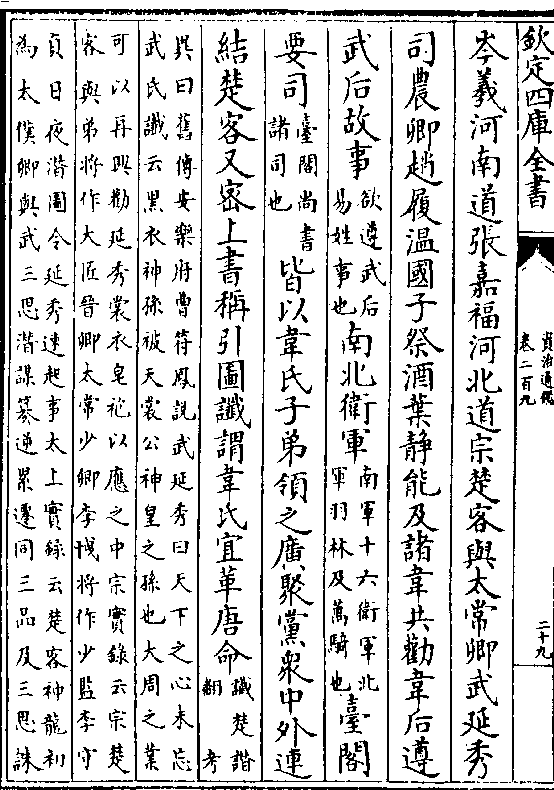 欽定四庫全書
資治通鑑
卷二百九
二十九
岑羲河南道張嘉福河北道宗楚客與太常卿武延秀
司農卿趙履温國子祭酒葉靜能及諸韋共勸韋后遵
武后故事欲遵武后易姓事也南北衛軍南軍十六衛軍北軍羽林及萬騎也臺閣
要司臺閣尚書諸司也皆以韋氏子弟領之廣聚黨衆中外連
結楚客又密上書稱引圖讖謂韋氏宜革唐命讖楚譖翻考
異曰舊傳安樂府曹符鳳說武延秀曰天下之心未忘
武氏讖云黑衣神孫被天裳公神皇之孫也大周之業
可以再興勸延秀裳衣皂袍以應之中宗實錄云宗楚
客與弟將作大匠晉卿太常少卿李將作少監李守
貞日夜潛圖令延秀速起事太上實錄云楚客神龍初
為太僕卿與武三思潛謀簒逆累遷同三品及三思誅